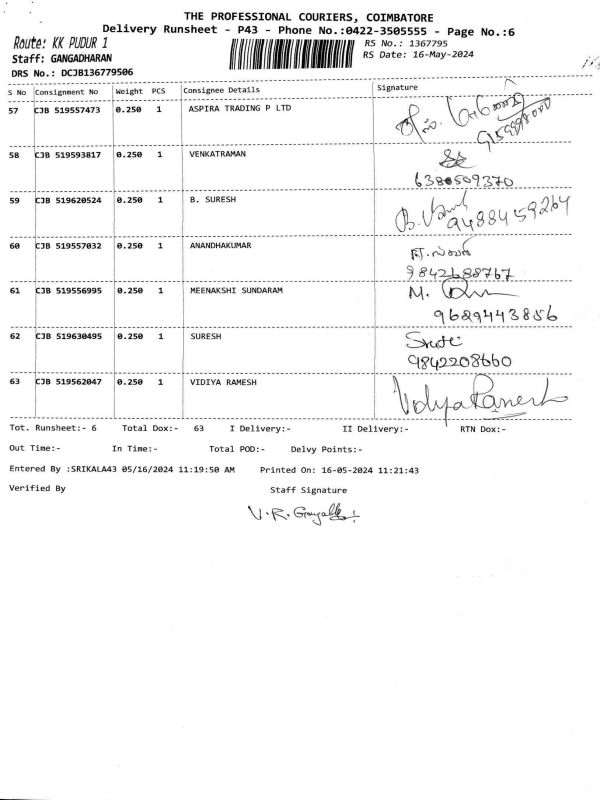 THE PROFESSIONAL COURIERS, COIMBATORE
Delivery Runsheet - P43 - Phone No.:0422-3505555 - Page No.:6
Route: KK PUDUR 1
RS No.: 1367795
Staff: GANGADHARAN
RS Date: 16-May-2024
DRS No.: DCJB136779506
S No Consignment No Weight PCS Consignee Details Signature
57 CJB 519557473 0.250 1 ASPIRA TRADING P LTD
58 CJB 519593817 0.250 1 VENKATRAMAN
6380509370
59 CJB 519620524 0.250 1 B. SURESH
9488459264
60 CJB 519557032 0.250 1 ANANDHAKUMAR
9842688767
61 CJB 519556995 0.250 1 MEENAKSHI SUNDARAM M.
9629443856
62 CJB 519630495 0.250 1 SURESH
9842208660
63 CJB 519562047 0.250 1 VIDIYA RAMESH Vidya Ramesh
Tot. Runsheet:- 6 Total Dox:- 63 I Delivery:- II Delivery:- RTN Dox:-
Out Time:- In Time:- Total POD:- Delvy Points:-
Entered By :SRIKALA43 05/16/2024 11:19:50 AM Printed On: 16-05-2024 11:21:43
Verified By Staff Signature
V.R.